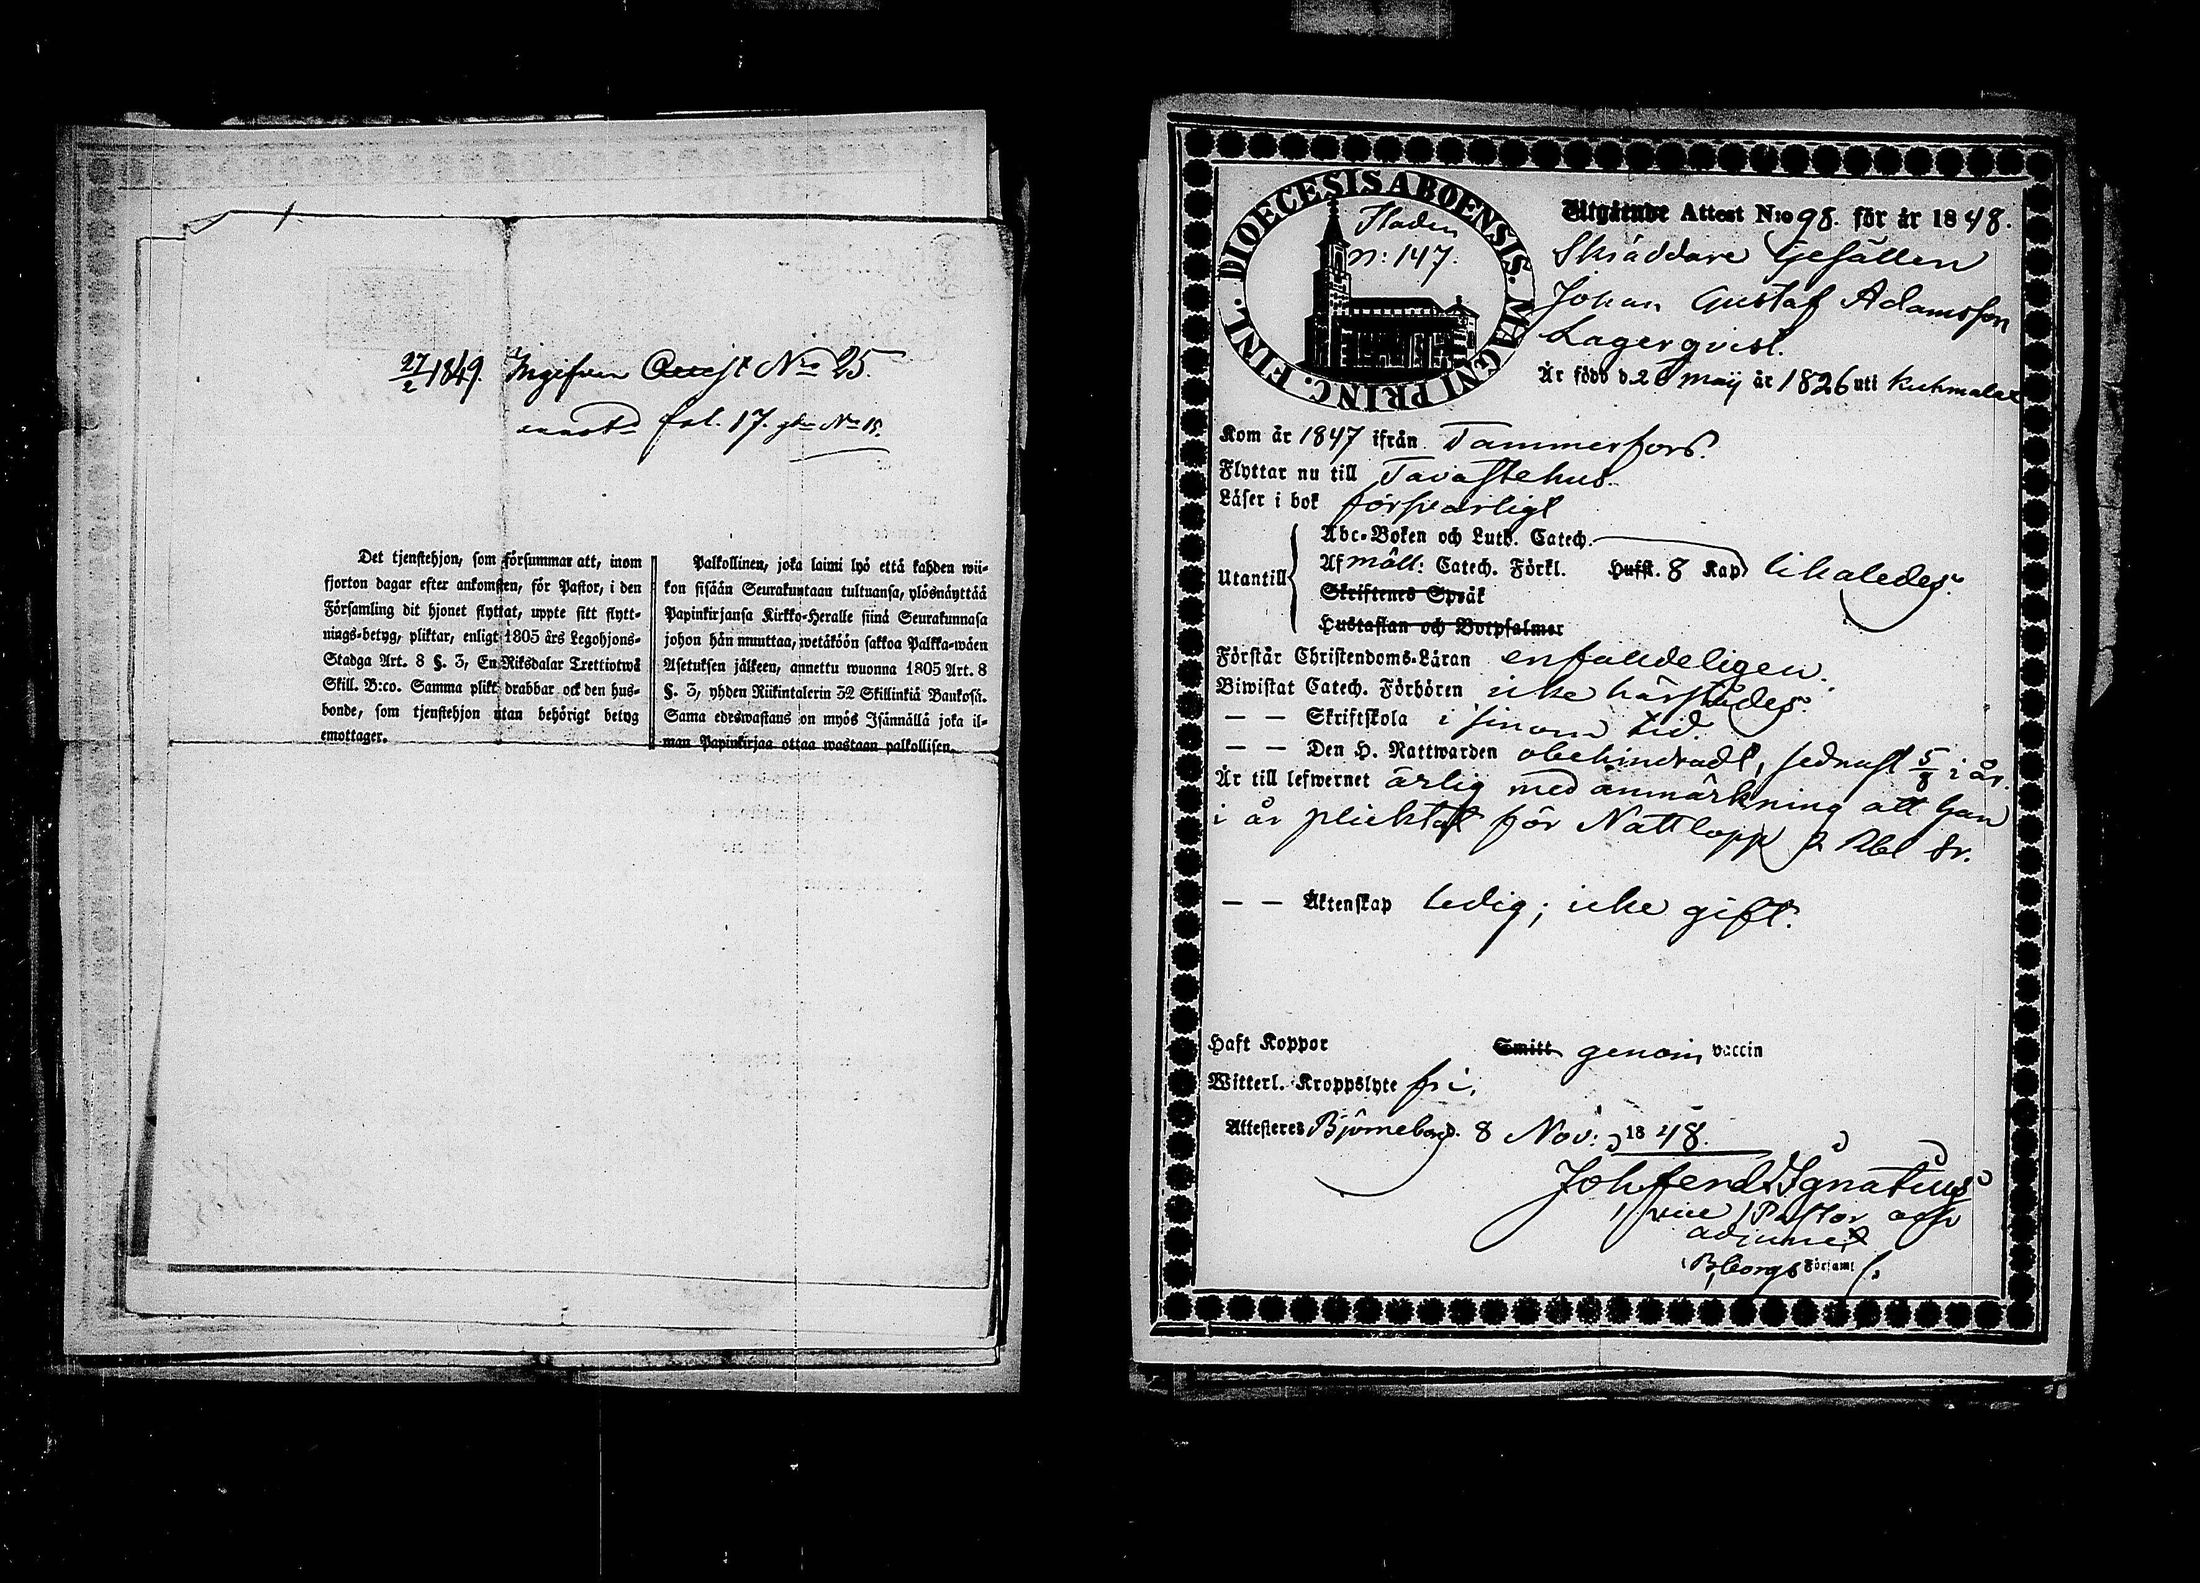 27/2 1849. Ingifven Qvist No 25.
fol. 17. No 15.
Det tjenstehjon, som försummar att, inom
fjorton dagar efter ankomsten, för Pastor, i den
Församling dit hjonet flyttat, uppte sitt flytt-
nings-betyg, pliktar, enligt 1805 års Legohjons-
Stadga Art. 8 §. 3, En Riksdalar Trettiotwå
Skill. B:co. Samma plikt drabbar ock den hus-
bonde, som tjenstehjon utan behörigt betyg
emottager.
Palkollinen, joka laimi lyö että kahden wii-
kon sisään Seurakuntaan tultuansa, ylösnäyttää
Papinkirjansa Kirkko-Heralle siinä Seurakunnasa
johon hän muuttaa, wetäköön sakkoa Palkka-wäen
Asetuksen jälkeen, annettu wuonna 1805 Art. 8
§. 3, yhden Riikintalerin 32 Skillinkiä Bankosa.
Sama edeswastaus on myös Isännällä joka il-
man Papinkirjaa ottaa wastaan palkollisen.
DIOECESIS ABOENSIS. MAGNI PRINC. FINL.
Staden
n: 147.
Utgående Attest N:o 98. för år 1848.
Skräddare Gesällen
Johan Gustaf Adamsson
Lagerqvist.
Är född d. 26 Maij år 1826 uti Kuhmalax
Kom år 1847 ifrån Tammerfors.
Flyttar nu till Tavastehus.
Läser i bok försvarligt
Utantill
Abc-Boken och Luth. Catech.
Af måll: Catech. Förkl. Hufst. 8 Kap likaledes.
Skriftenes Språk
Hustaflan och Botpsalmer
Förstår Christendoms-Läran enfaldeligen.
Biwistat Catech. Förhören icke härstädes.
— — Skriftskola i sinom tid.
— — Den H. Nattwarden obehindradt, sednast 5/8 i år.
Är till lefwernet ärlig med anmärkning att han
i år plicktat för Nattlopp 2 Rbl Sr.
— — Äktenskap ledig; icke gift.
Haft Koppor Smitt genom vaccin
Witterl. Kroppslyte fri.
Attesteres Björneborg. 8 Nov: 1848.
Joh Ferd Ignatius
vice Pastor och
adjunct
i Bborgs Församl